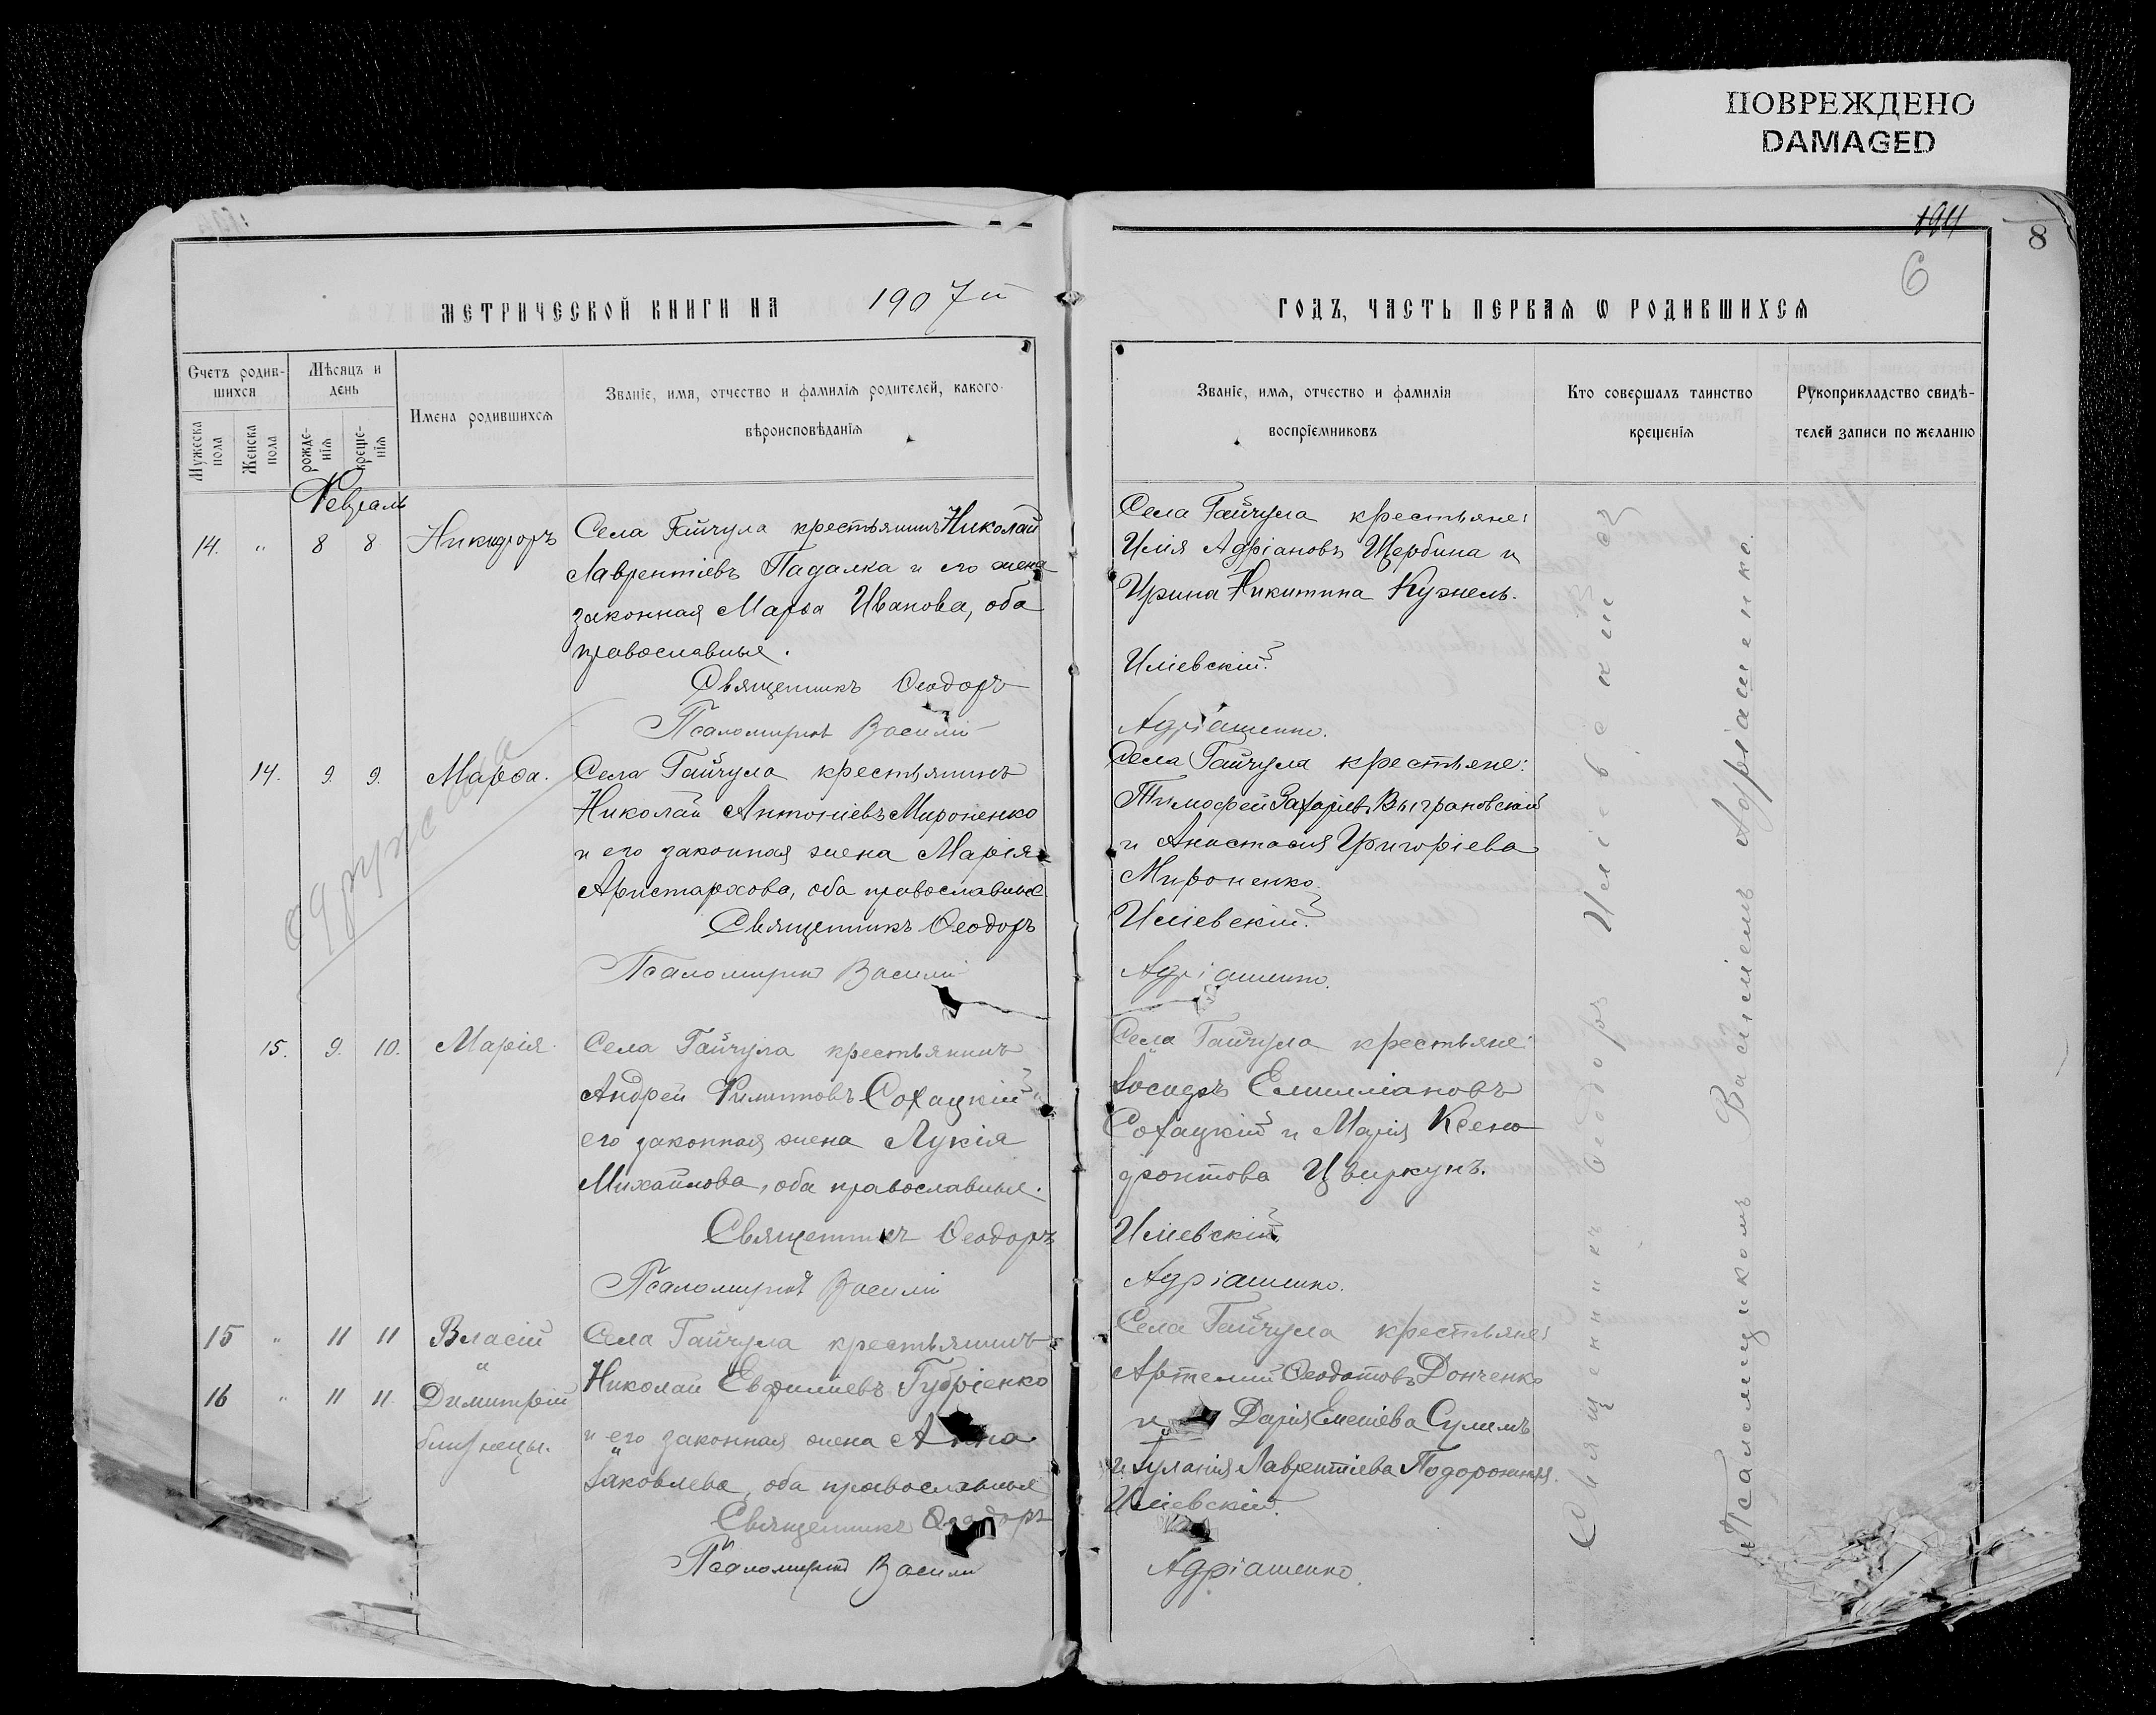 ПОВРЕЖДЕНО
DAMAGED
8
6
МЕТРИЧЕСКОЙ КНИГИ НА 1907 й
ГОДЪ, ЧАСТЬ ПЕРВАЯ Ѡ РОДИВШИХСЯ
Счетъ родив-
шихся
Мужеска
пола
Женска
пола
Мѣсяцъ и
день
рожде-
нія
креще-
нія
Имена родившихся
Званіе, имя, отчество и фамилія родителей, какого
вѣроисповѣданія
Званіе, имя, отчество и фамилія
воспріемниковъ
Кто совершалъ таинство
крещенія
Рукоприкладство свидѣ-
телей записи по желанію
Февраль
14. " 8 8 Никифоръ
Села Гайчула крестьянинъ Николай
Лаврентіевъ Падалка и его жена
законная Марѳа Иванова, оба
православные.
Священникъ Ѳеодоръ
Псаломщикъ Василій
Села Гайчула крестьяне:
Илія Адріановъ Щербина и
Ирина Никитина Кужель.
Иліевскій.
Адріашенко.
14. 9. 9. Марѳа.
Села Гайчула крестьянинъ
Николай Антоніевъ Мироненко
и его законная жена Марія
Аристархова, оба православные.
Священникъ Ѳеодоръ
Псаломщикъ Василій
Села Гайчула крестьяне:
Тимофей Захаріевъ Выграновскій
и Анастасія Григоріева
Мироненко.
Иліевскій.
Адріашенко.
15. 9. 10. Марія.
Села Гайчула крестьянинъ
Андрей Сохацкій и
его законная жена Лукія
Михайлова, оба православные.
Священникъ Ѳеодоръ
Псаломщикъ Василій
Села Гайчула крестьяне:
Іосифъ Емилліановъ
Сохацкій и Марія Ксено
фонтова Цвиркунъ.
Иліевскій.
Адріашенко.
15 " 11 11 Власій
"
16 " 11 11. Димитрій
близнецы.
Села Гайчула крестьянинъ
Николай Евфиміевъ Губріенко
и его законная жена Анна
Іаковлева, оба православные
Священникъ Ѳеодоръ
Псаломщикъ Василій
Села Гайчула крестьяне:
Артемій Ѳеодотовъ Донченко
и Дарія Сулимъ
и Лаврентіева Подорожняя.
Иліевскій.
Адріашенко.
Священникъ Ѳеодоръ Иліевскій съ
Псаломщикомъ Василіемъ Адріашенко.